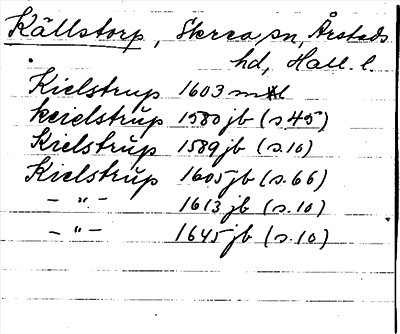 Källstorp, Skrea sn, Årstads
hd, Hall. l.
Kielstrup 1603 mtl
Keielstrup 1580 jb (s. 45)
Kielstrup 1589 jb (s. 10)
Kielstrup 1605 jb (s. 66)
– " – 1613 jb (s. 10)
– " – 1645 jb (s. 10)